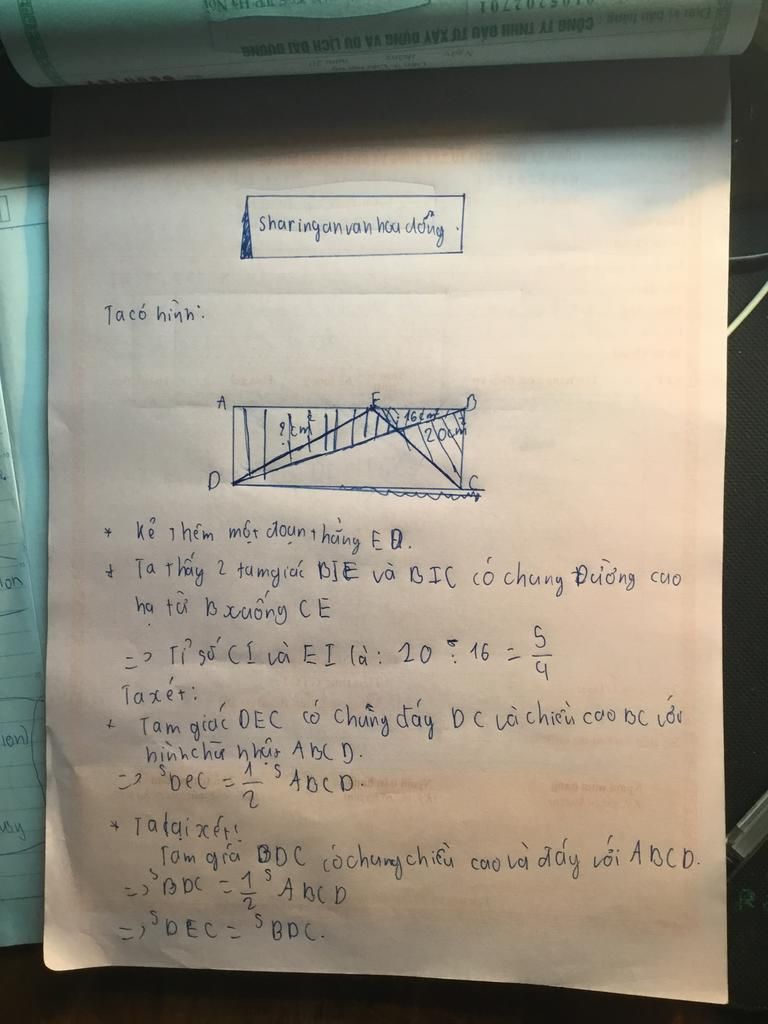 CÔNG TY TNHH ĐẦU TƯ XÂY DỰNG VÀ DU LỊCH ĐẠI DƯƠNG
Sharinganvanhoadống.
Ta có hình:
A E B
?cm² 16cm² 20cm²
D C
* Kẻ thêm một đoạn thẳng ED.
* Ta thấy 2 tam giác BIE và BIC có chung Đường cao
hạ từ B xuống CE
=> Tỉ số CI và EI là: 20 : 16 = 5/4
Ta xét:
* Tam giác DEC có chung đáy DC và chiều cao BC với
hình chữ nhật ABCD.
=> SDEC = 1/2 SABCD.
* Ta lại xét:
Tam giá BDC có chung chiều cao và đáy với ABCD.
=> SBDC = 1/2 SABCD
=> SDEC = SBDC.